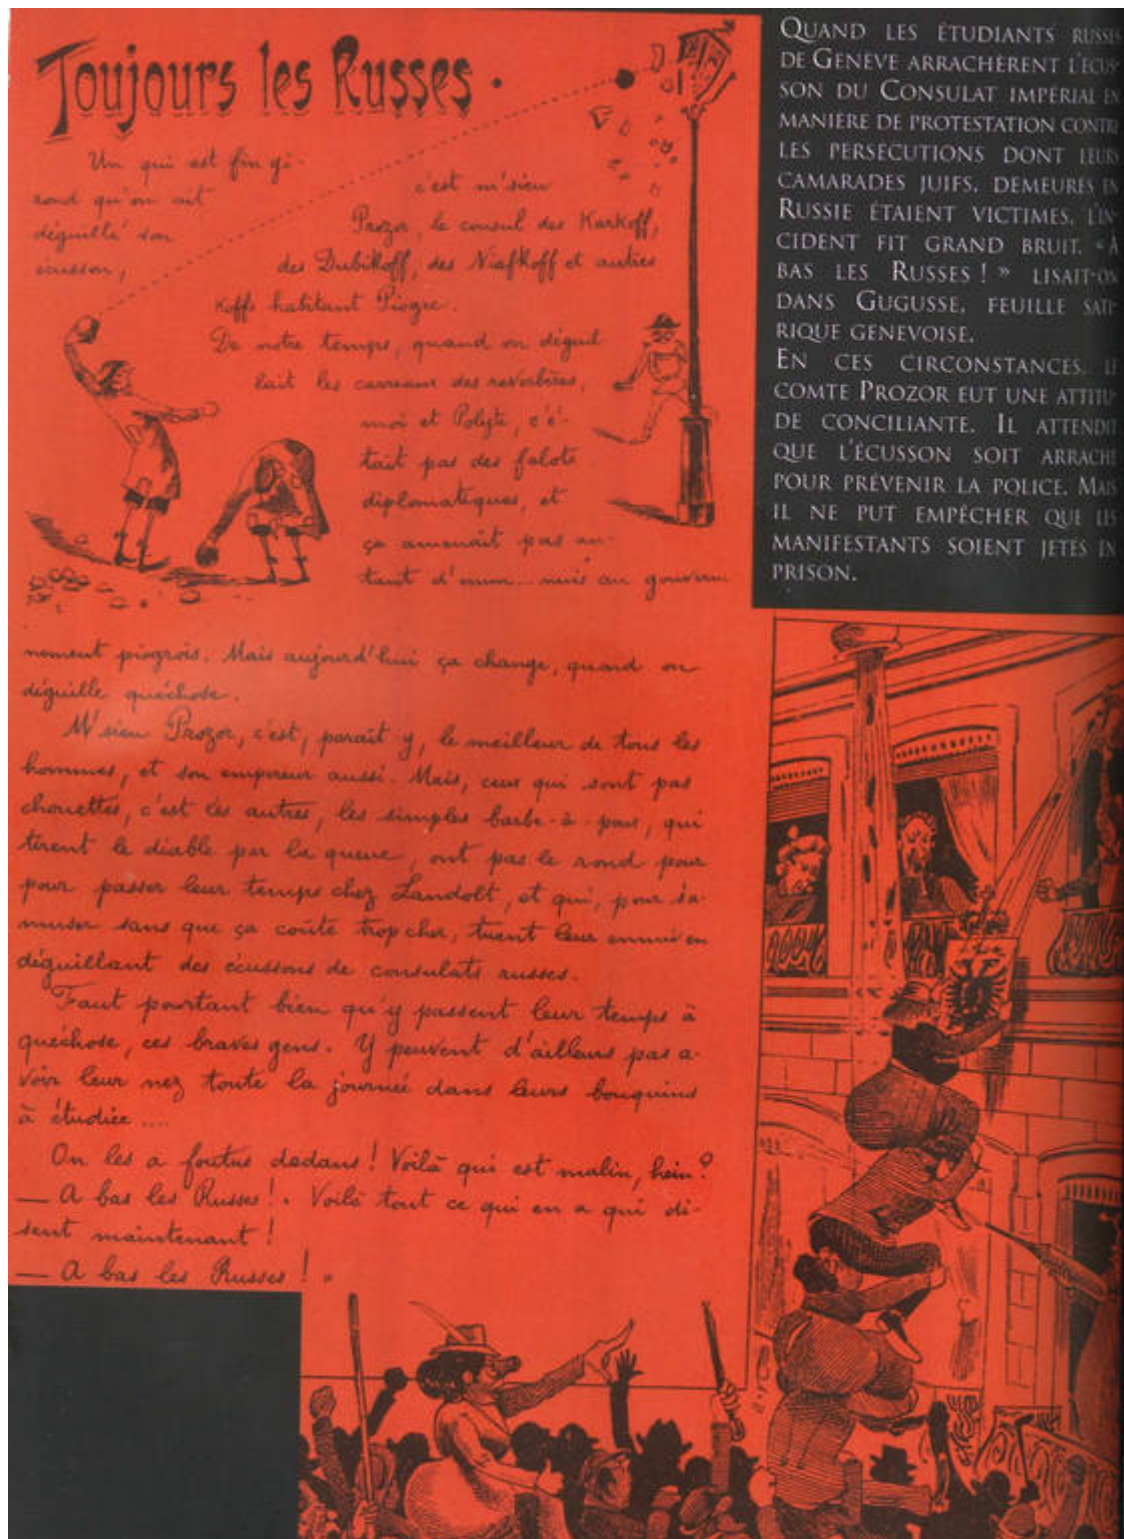 Toujours les Russes.
Un qui est fin gi-
rond qu'on ait
déguillé son
écusson,
c'est m'sieu
Prozor, le consul des Karkoff,
des Dubikoff, des Niafkoff et autres
koffs habitant Piogre.
De notre temps, quand on déguil
lait les carreaux des reverbères,
moi et Polyte, c'é-
tait pas des falots
diplomatiques, et
ça amenait pas au-
tant d'ennui au gouverne
nement piogrois. Mais aujourd'hui ça change, quand on
déguille quéchose.
M'sieu Prozor, c'est, paraît y, le meilleur de tous les
hommes, et son empereur aussi. Mais, ceux qui sont pas
chouettes, c'est les autres, les simples barbe-à-poux, qui
tirent le diable par la queue, ont pas le rond pour
pour passer leur temps chez Landolt, et qui, pour s'a-
muser sans que ça coûte trop cher, tuent leur ennui en
déguillant des écussons de consulats russes.
Faut pourtant bien qu'y passent leur temps à
quéchose, ces braves gens. Y peuvent d'ailleurs pas a-
voir leur nez toute la journée dans leurs bouquins
à étudier....
On les a foutus dedans! Voilà qui est malin, hein?
— A bas les Russes!. Voilà tout ce qui en a qui di-
sent maintenant!
— A bas les Russes! »
QUAND LES ÉTUDIANTS RUSSES
DE GENÈVE ARRACHÈRENT L'ÉCUS-
SON DU CONSULAT IMPÉRIAL EN
MANIÈRE DE PROTESTATION CONTRE
LES PERSÉCUTIONS DONT LEURS
CAMARADES JUIFS, DEMEURÉS EN
RUSSIE ÉTAIENT VICTIMES, L'IN-
CIDENT FIT GRAND BRUIT. « À
BAS LES RUSSES ! » LISAIT-ON
DANS GUGUSSE, FEUILLE SATI-
RIQUE GENEVOISE.
EN CES CIRCONSTANCES, LE
COMTE PROZOR EUT UNE ATTITU-
DE CONCILIANTE. IL ATTENDIT
QUE L'ÉCUSSON SOIT ARRACHÉ
POUR PRÉVENIR LA POLICE. MAIS
IL NE PUT EMPÊCHER QUE LES
MANIFESTANTS SOIENT JETÉS EN
PRISON.